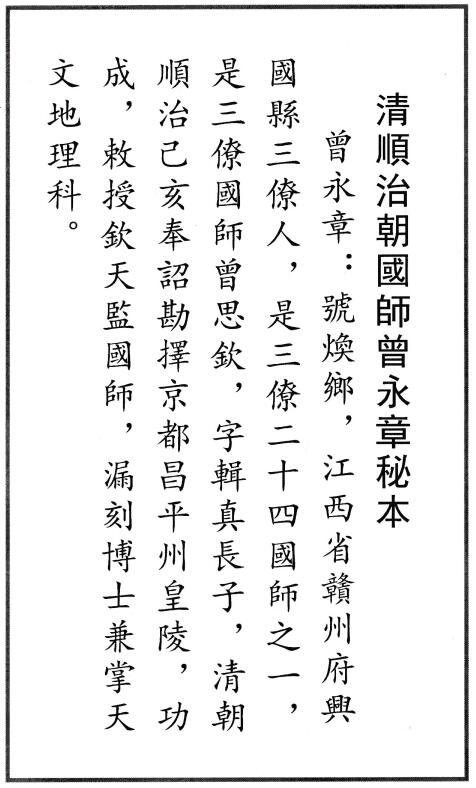 清順治朝國師曾永章秘本
曾永章：號煥鄉，江西省贛州府興
國縣三僚人，是三僚二十四國師之一，
是三僚國師曾思欽，字輯真長子，清朝
順治己亥奉詔勘擇京都昌平州皇陵，功
成，敕授欽天監國師，漏刻博士兼掌天
文地理科。